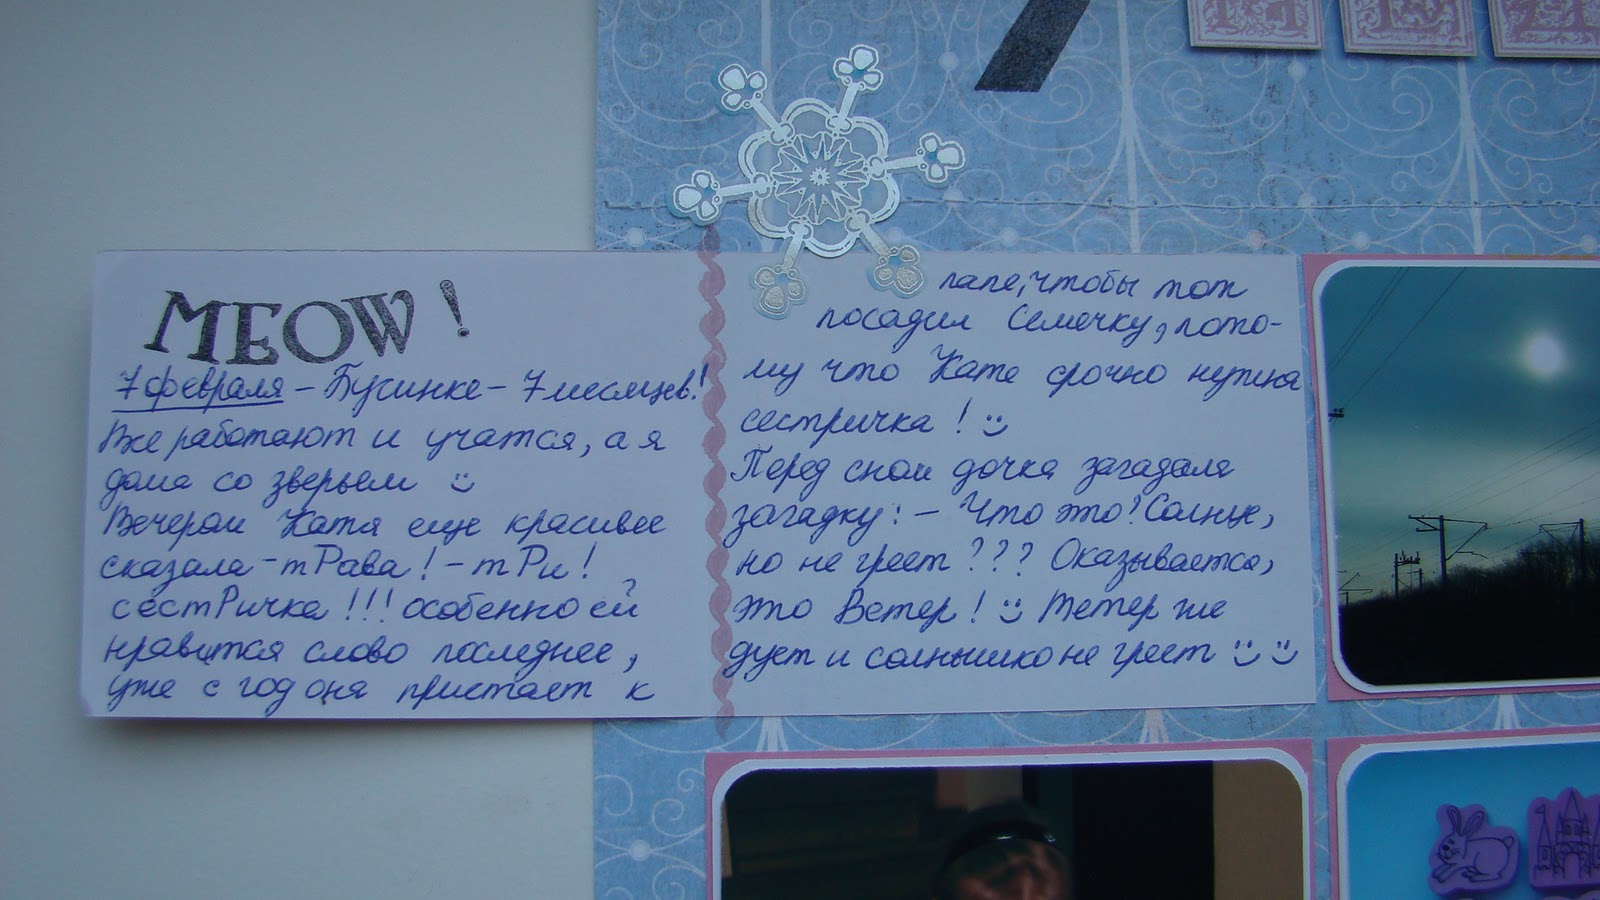 MEOW!
7 февраля – Бусинке – 7 месяцев!
Все работают и учатся, а я
дома со зверьем :)
Вечером Катя еще красивее
сказала – тРава! – тРи!
сестРичка!!! особенно ей
нравится слово последнее,
уже с год она пристает к
папе, чтобы тот
посадил Семечку, пото-
му что Кате срочно нужна
сестричка! :)
Перед сном дочка загадала
загадку: – Что это? Солнце,
но не греет??? Оказывается,
это Ветер! :) Ветер же
дует и солнышко не греет :) :)
7